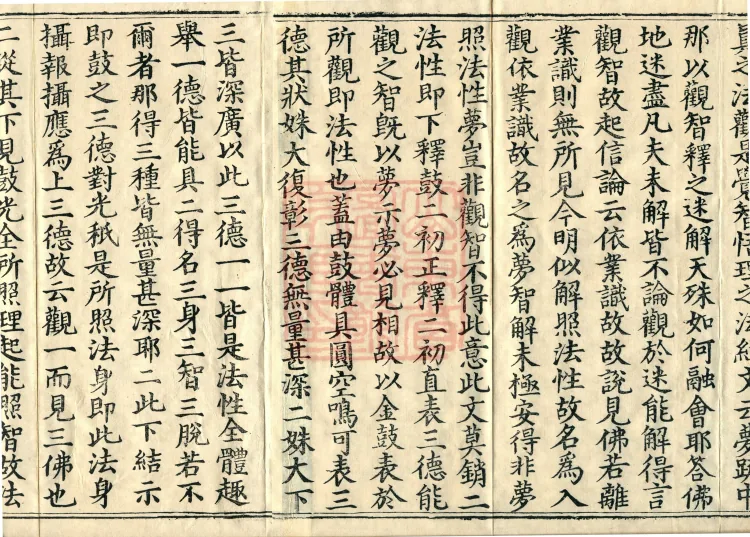 眞之法觀是覺智悟理之法經文云夢蹈中
那以觀智釋之迷解天殊如何融會耶答佛
地迷盡凡夫未解皆不論觀於迷能解得言
觀智故起信論云依業識故故說見佛若離
業識則無所見今明似解照法性故名爲入
觀依業識故名之爲夢智解未極安得非夢
照法性夢豈非觀智不得此意此文莫銷二
法性即下釋鼓二初正釋二初直表三德能
觀之智旣以夢示夢必見相故以金鼓表於
所觀即法性也蓋由鼓體具圓空鳴可表三
德其狀姝大復彰三德無量甚深二姝大下
三皆深廣以此三德一一皆是法性全體趣
舉一德皆能具二得名三身三智三脫若不
爾者那得三種皆無量甚深耶二此下結示
即鼓之三德對光秖是所照法身即此法身
攝報攝應爲上三德故云觀一而見三佛也
二從其下見鼓光全所照理起能照智故法